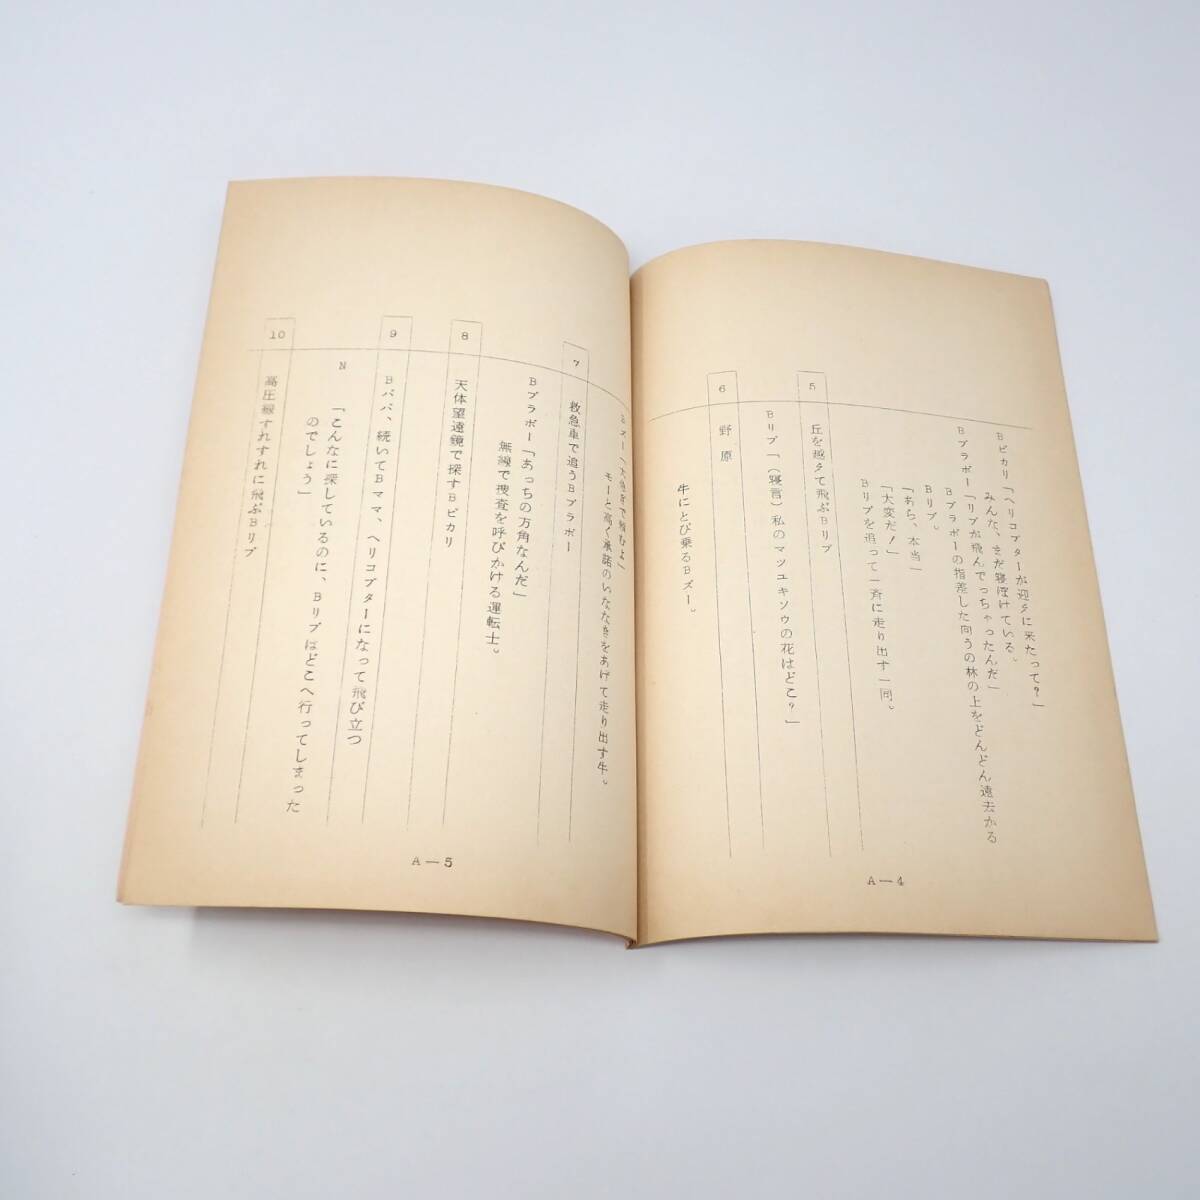 Bピカリ「ヘリコプターが迎えに来たって?」
みんな、まだ寝ぼけている。
Bブラボー「リブが飛んでっちゃったんだ」
Bブラボーの指差した向うの林の上をどんどん遠去かる
Bリブ。
「あら、本当」
「大変だ!」
Bリブを追って一斉に走り出す一同。
5 丘を越えて飛ぶBリブ
Bリブ「(寝言)私のマツユキソウの花はどこ?」
6 野原
牛にとび乗るBズー。
A—4
Bズー「大急ぎで頼むよ」
モーと高く承諾のいななきをあげて走り出す牛。
7 救急車で追うBブラボー
Bブラボー「あっちの方角なんだ」
無線で捜査を呼びかける運転士。
8 天体望遠鏡で探すBピカリ
9 Bパパ、続いてBママ、ヘリコプターになって飛び立つ
N 「こんなに探しているのに、Bリブはどこへ行ってしまった
のでしょう」
10 高圧線すれすれに飛ぶBリブ
A—5